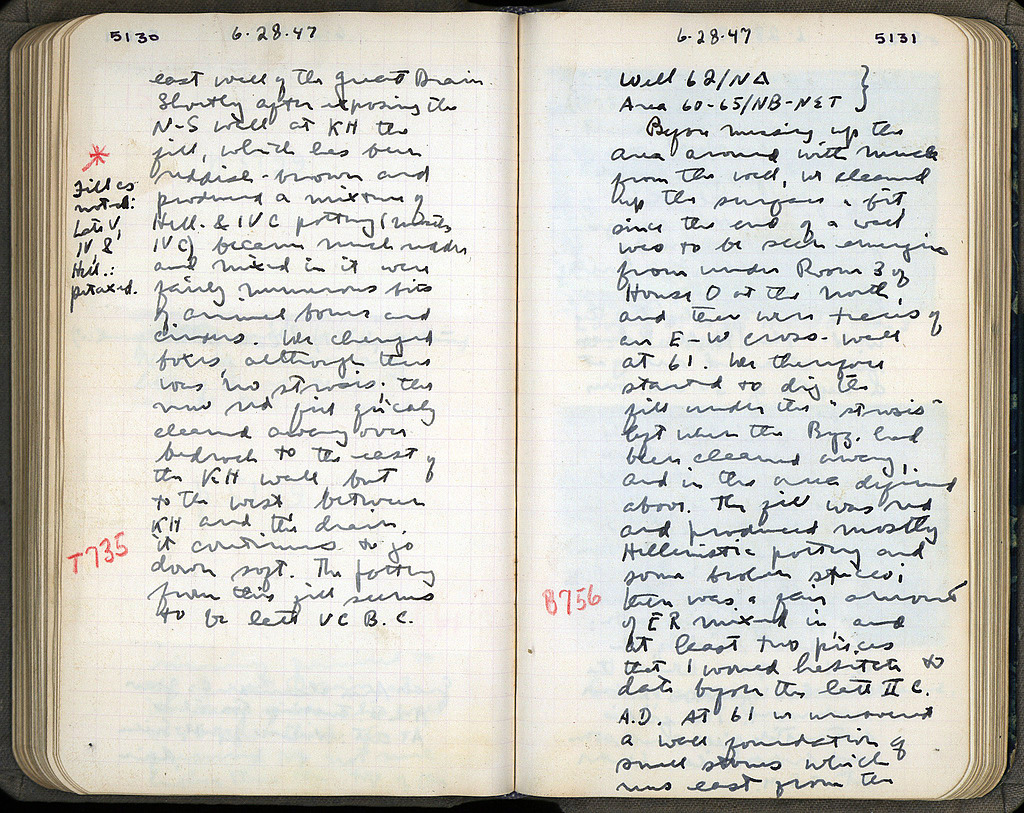 5130
6·28·47
east wall of the Great Drain.
Shortly after exposing the
N-S wall at KH the
fill, which has been
reddish-brown and
produced a mixture of
Hell. & IV C pottery (mostly
IV C) became much redder
and mixed in it were
fairly numerous bits
of animal bones and
cinders. We changed
boxes, although there
was no strosis: the
new red fill quickly
cleaned away over
bedrock to the east of
the KH wall but
to the west between
KH and the drain,
it continues to go
down soft. The pottery
from this fill seems
to be late V C B.C.
*
Fill as
noted:
Late V,
IV, &
Hell.:
T735
6·28·47
5131
Well 62/ΝΔ
Area 60-65/ΝΒ-ΝΣΤ }
Before messing up the
area around with muck
from the well, we cleaned
up the surface a bit
since the end of a wall
was to be seen emerging
from under Room 3 of
House O at the north,
and there were traces of
an E-W cross-wall
at 61. We therefore
started to dig the
fill under the "strosis"
left when the Byz. had
been cleaned away,
and in the area defined
above. The fill was red
and produced mostly
Hellenistic pottery and
some broken stucco;
there was a fair amount
of ER mixed in and
at least two pieces
that I would hesitate to
date before the late II C.
A.D. At 61 we uncovered
a wall foundation of
small stones which
runs east from the
B756